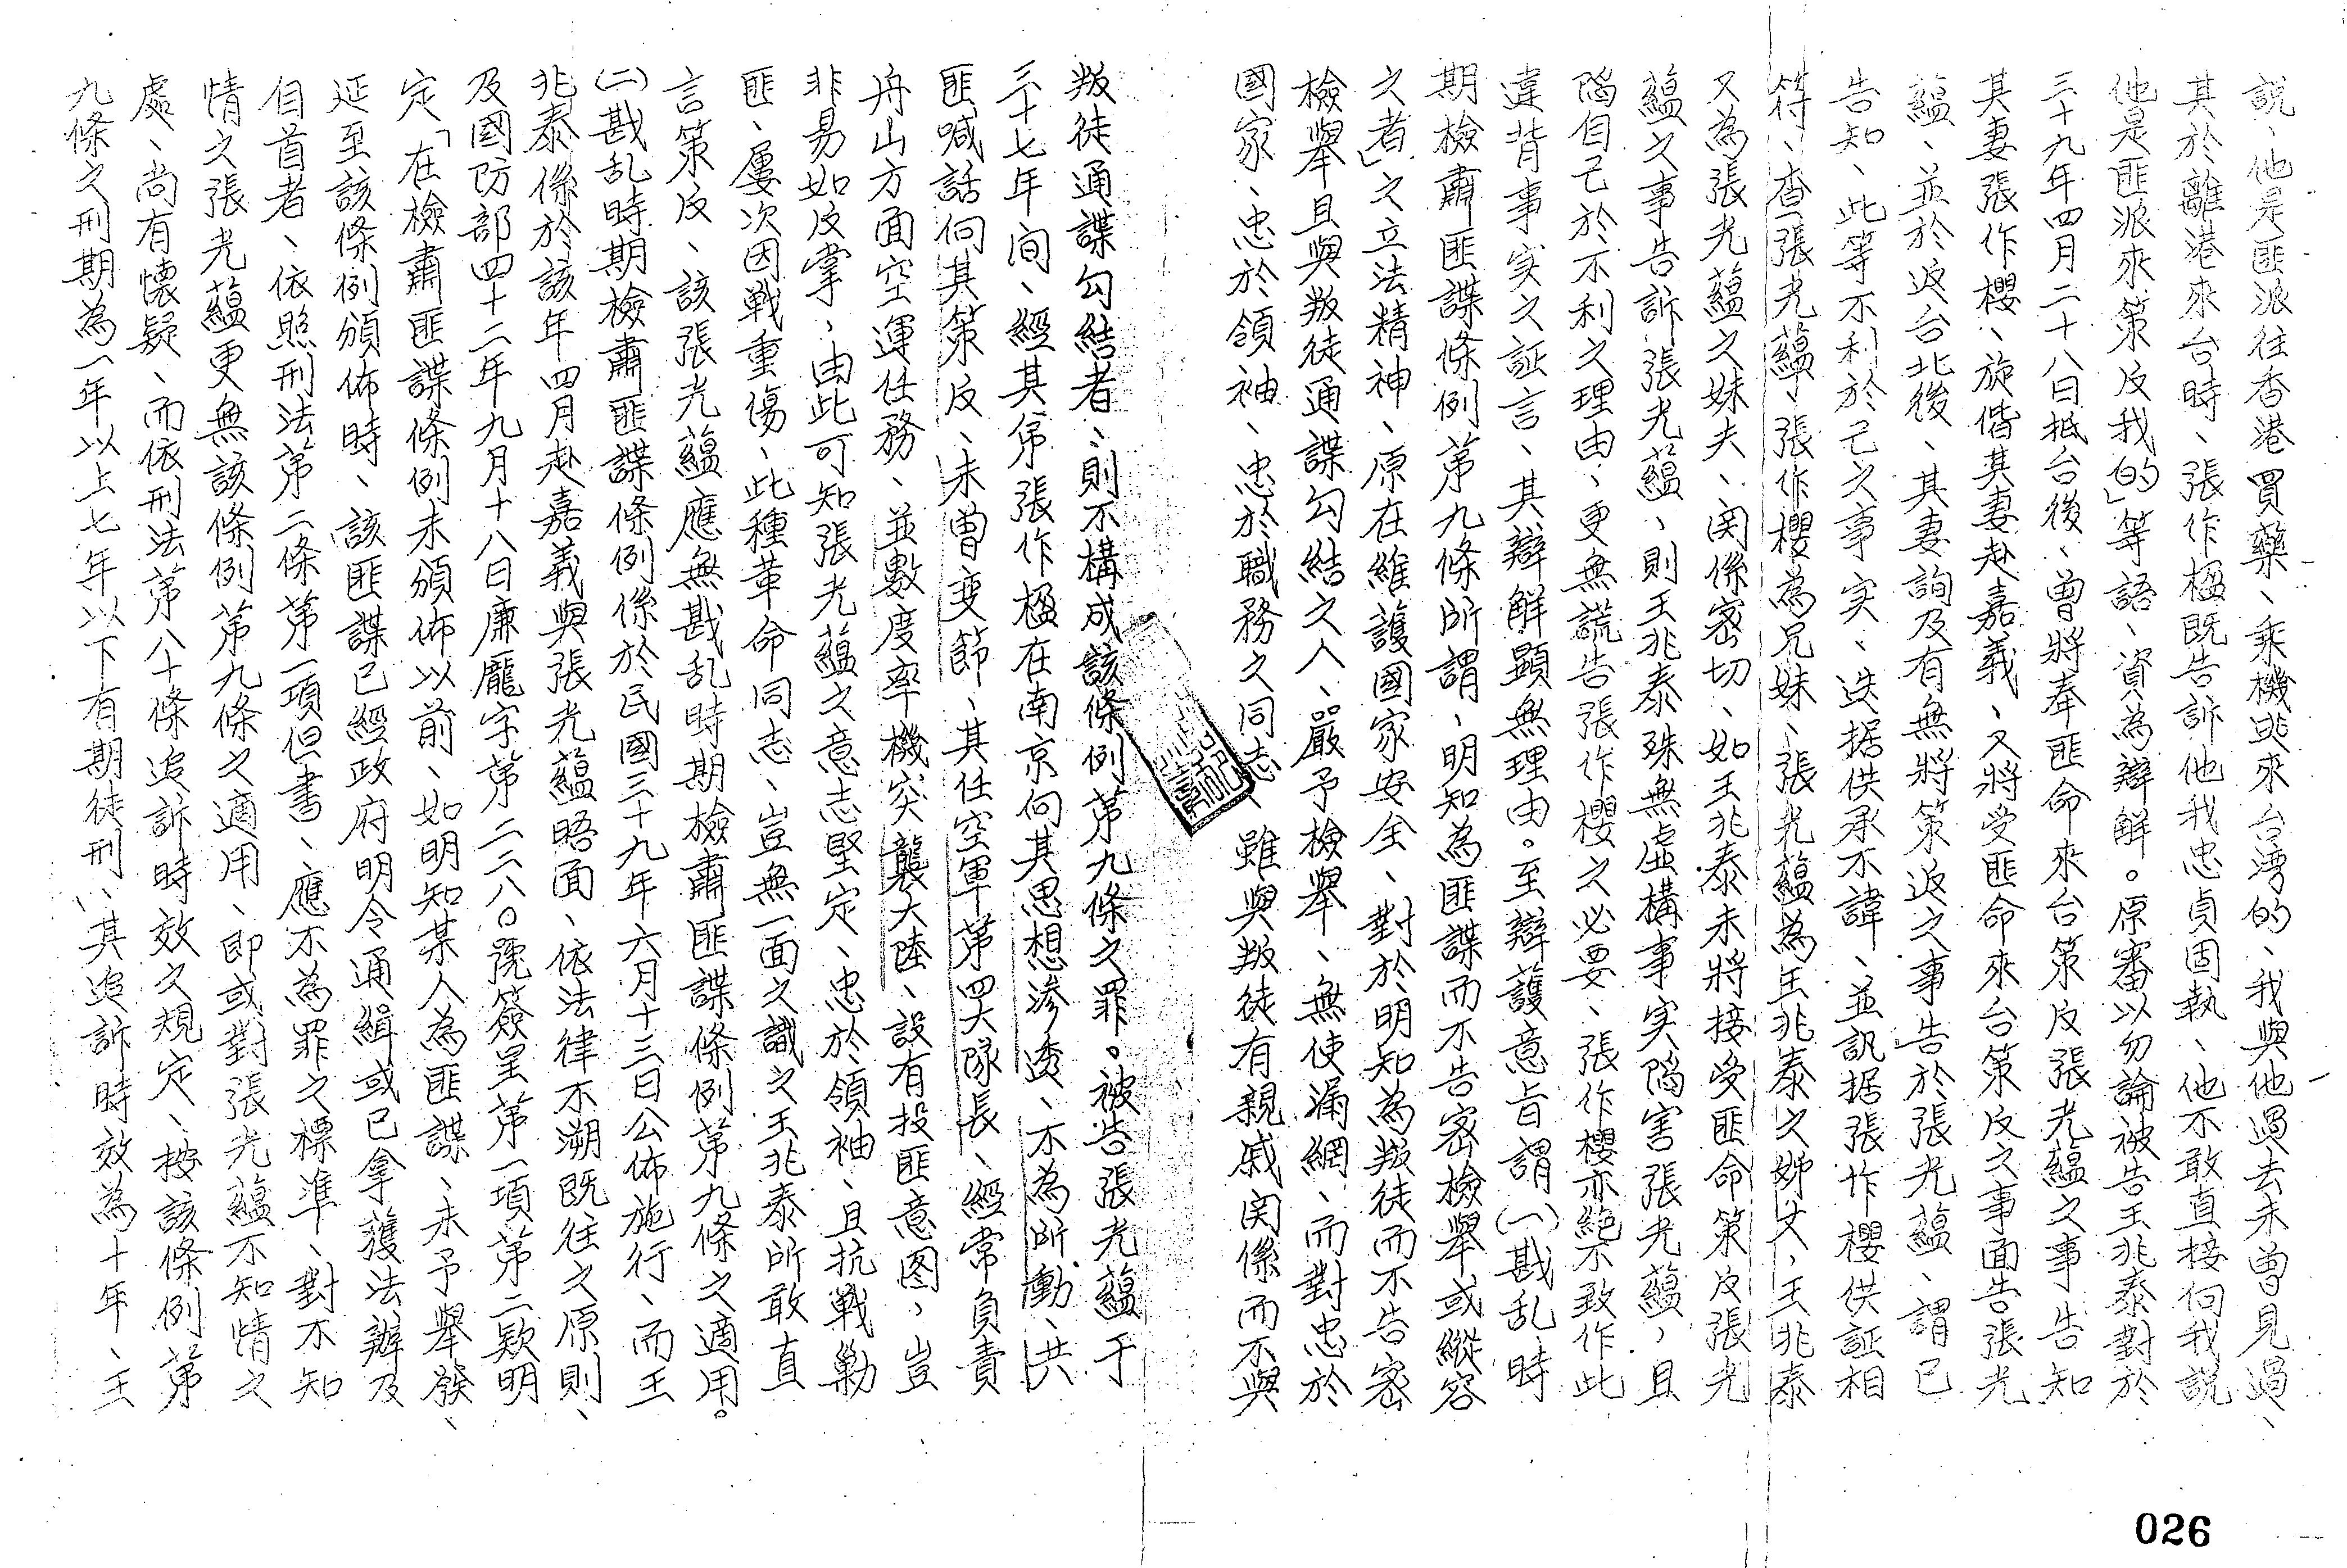 說、他是匪派往香港買藥、乘機逃來台湾的、我與他過去未曾見過、
其於離港來台時、張作楹既告訴他我忠貞固執、他不敢直接向我說
他是匪派來策反我的」等語、資為辯解。原審以勿論被告王兆泰對於
三十九年四月二十八日抵台後、曾將奉匪命來台策反張光蘊之事告知
其妻張作櫻、旋偕其妻赴嘉義、又將受匪命來台策反之事面告張光
蘊、並於返台北後、其妻詢及有無將策返之事告於張光蘊、謂已
告知、此等不利於己之事实、迭据供承不諱、並訊据張作櫻供証相
符、查張光蘊、張作櫻為兄妹、張光蘊為王兆泰之姊丈、王兆泰
又為張光蘊之妹夫、関係密切、如王兆泰未將接受匪命策反張光
蘊之事告訴張光蘊、則王兆泰殊無虛構事实陷害張光蘊，且
陷自己於不利之理由、更無謊告張作櫻之必要、張作櫻亦絕不致作此
違背事实之証言、其辯解顯無理由。至辯護意旨謂(一)戡乱時
期檢肅匪諜條例第九條所謂、明知為匪諜而不告密檢舉或縱容
之者」之立法精神、原在維護國家安全、對於明知為叛徒而不告密
檢舉且與叛徒通諜勾結之人、嚴予檢舉、無使漏網、而對忠於
國家、忠於領袖、忠於職務之同志、雖與叛徒有親戚関係而不與
叛徒通諜勾結者、則不構成該條例第九條之罪。被告張光蘊于
三十七年间、經其弟張作楹在南京向其思想滲透、不為所動、共
匪喊話向其策反、未曾变節、其任空軍第四大隊長、經常負責
舟山方面空運任務、並數度率機突襲大陸、設有投匪意图，豈
非易如反掌、由此可知張光蘊之意志堅定、忠於領袖、且抗戰勦
匪、屢次因戰重傷、此種革命同志、豈無一面之識之王兆泰所敢直
言策反、該張光蘊應無戡乱時期檢肅匪諜條例第九條之適用。
(二)戡乱時期檢肅匪諜條例係於民國三十九年六月十三日公佈施行、而王
兆泰係於該年四月赴嘉義與張光蘊晤面、依法律不溯既往之原則、
及國防部四十二年九月十八日廉龐字第二二八〇號簽呈第一項第二款明
定「在檢肅匪諜條例未頒佈以前、如明知某人為匪諜、未予舉發、
延至該條例頒佈時、該匪諜已經政府明令通緝或已拿獲法辦及
自首者、依照刑法第二條第一項但書、應不為罪之標準、對不知
情之張光蘊更無該條例第九條之適用、即或對張光蘊不知情之
處、尚有懷疑、而依刑法第八十條追訴時效之規定、按該條例第
九條之刑期為一年以上七年以下有期徒刑、其追訴時效為十年、王
026